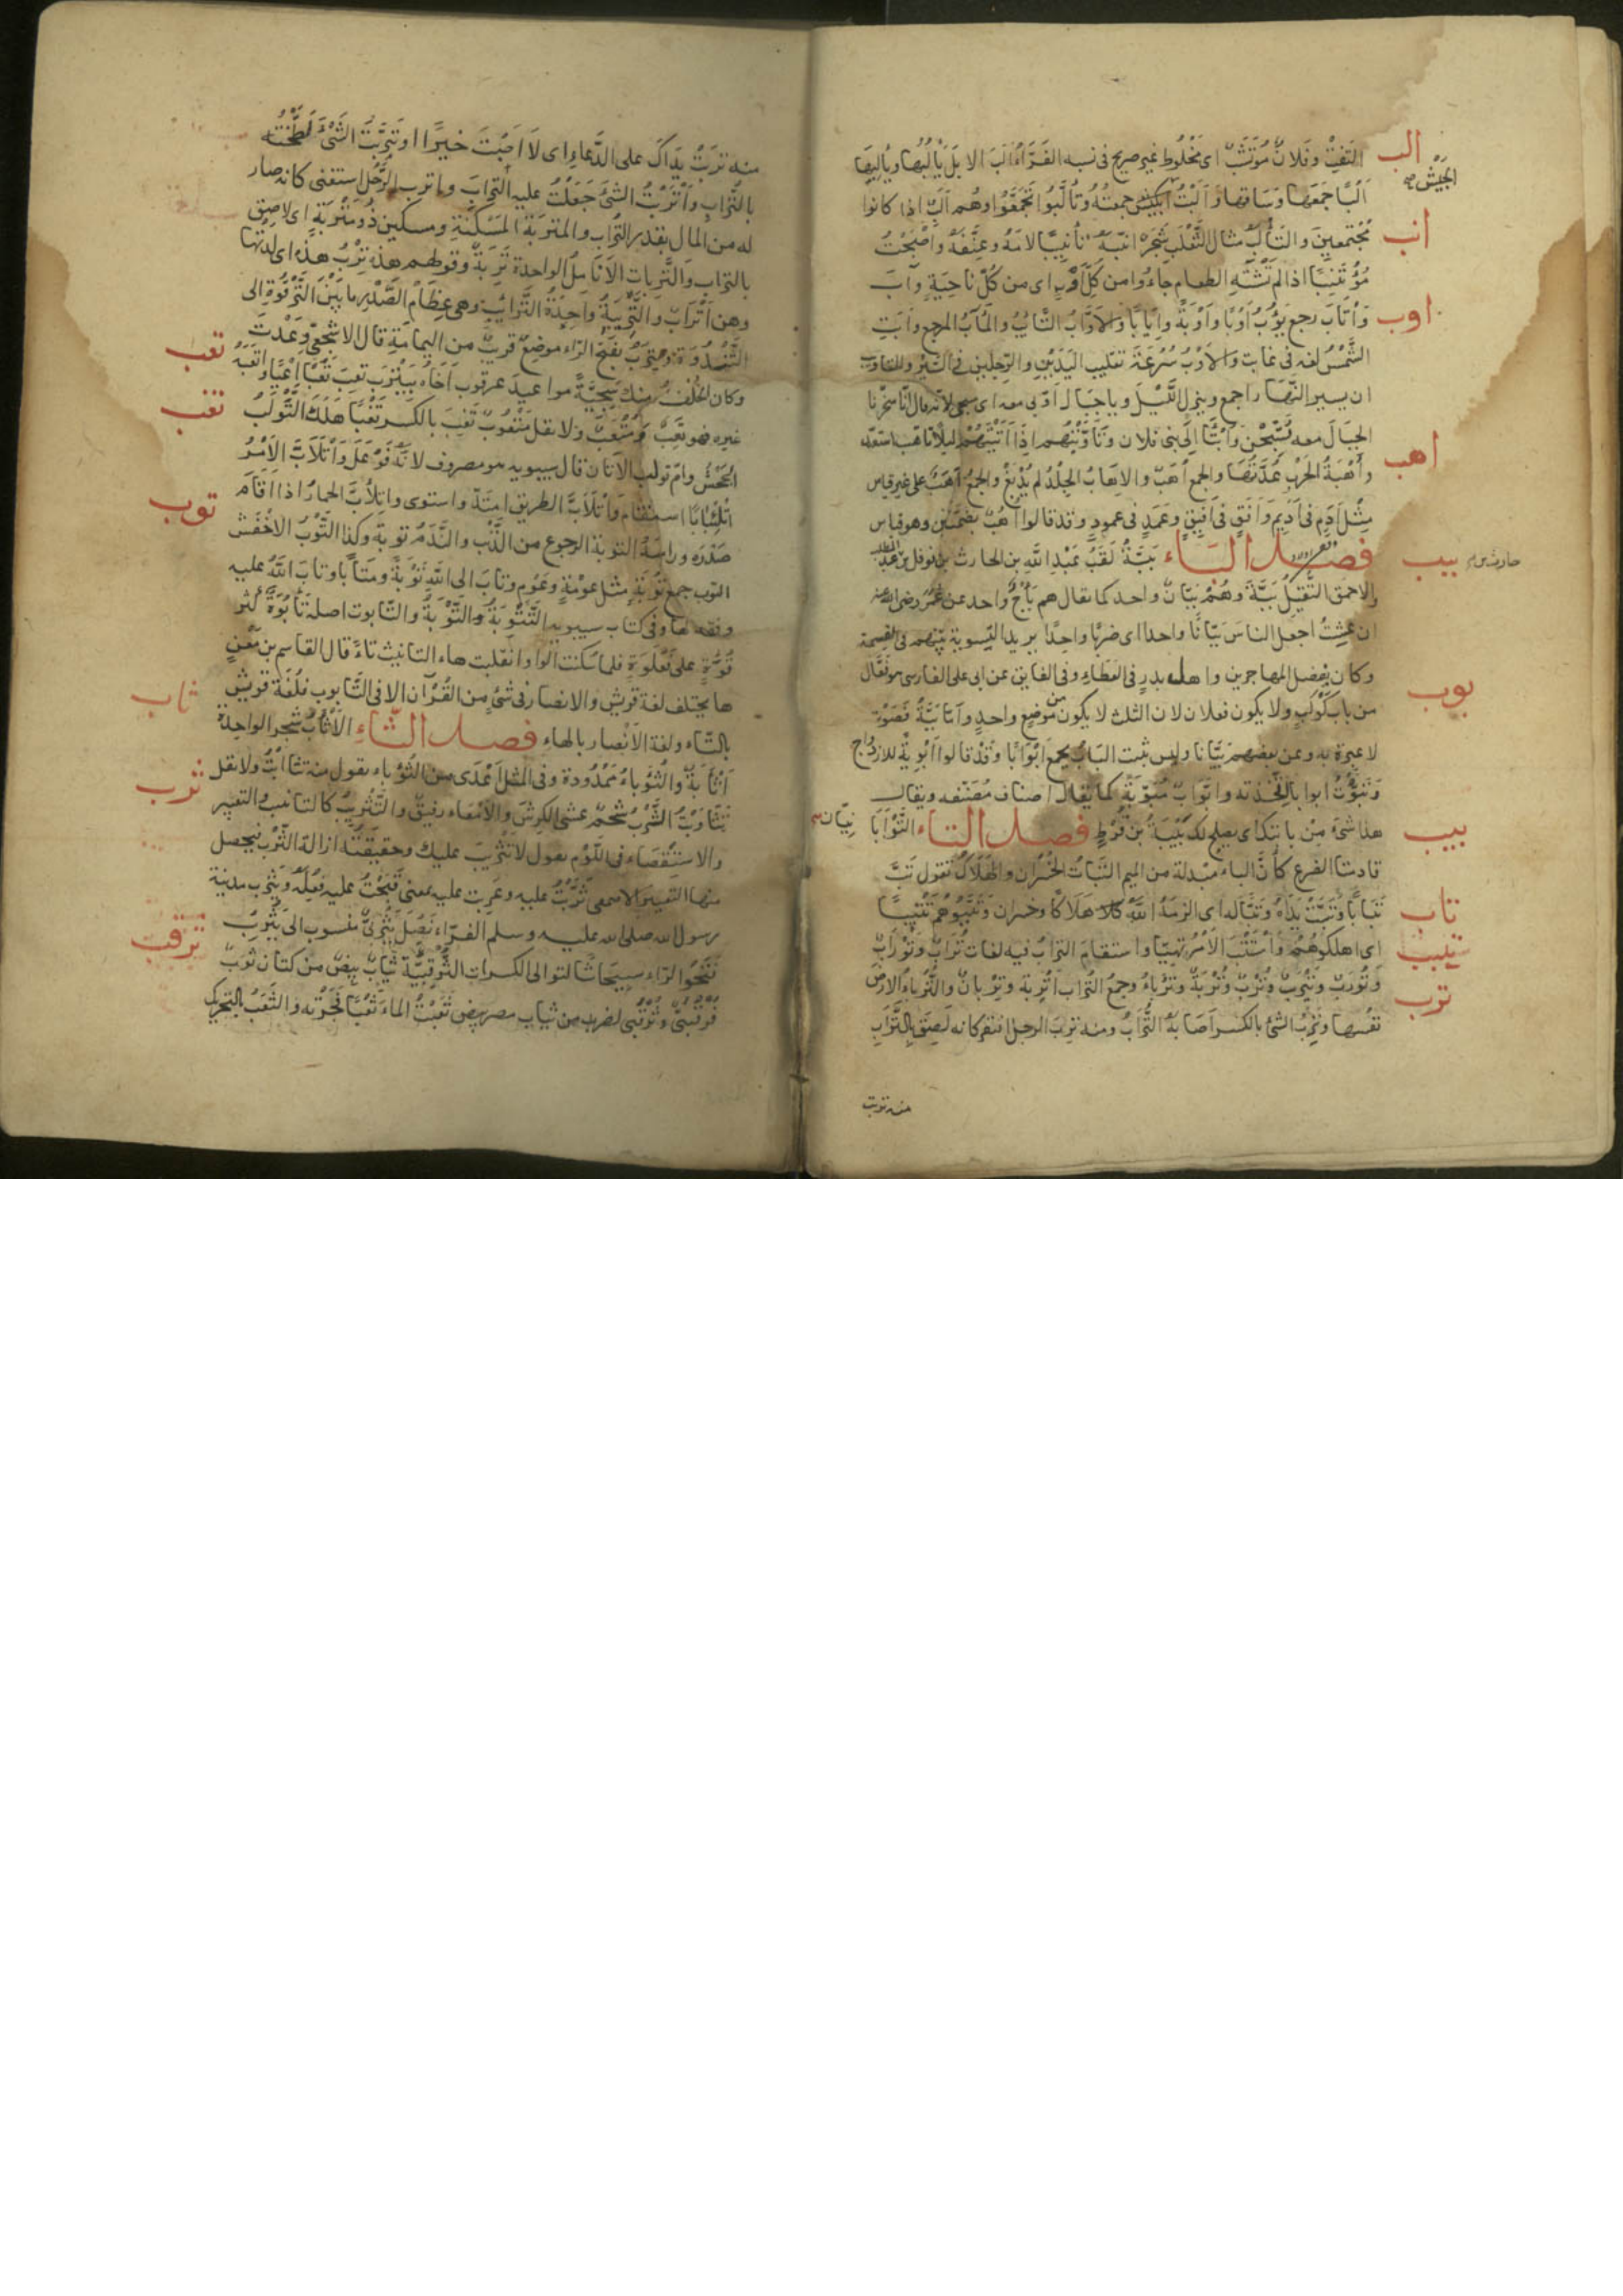 الب
التفت وفلانٌ مُؤتَشَبٌ اى مَخْلُوط غير صريح فى نسبه الفَرَّاء اَلَبَ الابلَ يَاْلُبُهَا ويَاْلِبُهَا
الجَيْشَ صح
اَلْبًا جَمَعَها وسَاقها وَاَلَبْتُ الجيش جمعتُهُ وتَاَلَّبُوا تَجَمَّعُوا وهُم اَلْبٌ اذا كانوا
انب
مُجْتمعِينَ والتَأْلَبُ مثال الثَّعْلَبِ شَجَرٌ انبَهُ تأنيبًا لامَهُ وعَنَّفَهُ واَصْبَحْتُ
مُؤْتَنِبًا اذا لم تَشْتَهِ الطعام جاءُوا من كلِّ اَوْبٍ اى من كُلِّ ناحِيَةٍ وآبَ
اوب
وَأْتَابَ رجع يَؤُبُ اَوْبًا واَوْبَةً واِيَابًا والاَوَّابُ التَّايُبُ والمَآبُ المرجع وآبَتِ
الشَّمْسُ لغه فى غابت والاَوْبُ سُرْعَةُ تقليب اليَدَيْنِ والرِّجلين فى السَّيْرِ والتاويب
ان يسير النَّهَارَ اجمع وينزل اللَّيْلَ وياجِبَال اَوّبى معه اى سبحى لانه قال انا سخرنا
الجِبَالَ معه يُسَبِّحْنَ واُبْتُ الى بنى فلان وتَأَوَّبْتُهم اذا اَتَيْتَهُمْ ليلا تأهب استعد
اهب
واُهْبَةُ الحَرْبِ عُدَّتُهَا والجمع اُهَبٌ والاِهَابُ الجِلْدُ لم يُدْبَغْ والجمعُ اَهَبٌ على غير قياس
مِثْلَ اَدَمٍ فى اَدِيمٍ واَفَقٍ فى اَفِيقٍ وعَمَدٍ فى عمودٍ وقد قالوا اُهُبٌ بضَمَّتَيْن وهو قياس
بيب
فصل الباء بَبَّةُ لَقَبُ عَبْدِ اللهِ بن الحارث بن نوفل بن عبد المطلب
والاحمق الثَّقِيلُ بَبَّةٌ وهُمْ بَبَّانٌ واحد كما يقال هم بَأْجٌ واحد عن عُمَرَ رضى الله عنه
ان عِشْتُ اجعل الناسَ بَبَّانًا واحدا اى ضربا واحِدًا يريد التسوية بينهم فى القسمة
وكان يُفضل المهاجرين واهل بدرٍ فى العَطَاءِ وفى الفايق عن ابى على الفارسى هو فَعَّال
بوب
من باب كَوْكَبٍ ولا يكون فعلان لان الثلث لا يكون من موضع واحدٍ
لا عبرة به وعن بعضهم بَيَّانا وليس بثبت البَابُ يجمع اَبْوَابًا وقَدْ قالوا اَبْوِبَةٌ للازدواج
وتَبَوَّبْتُ ابوابا اتَّخذته وابوابٌ مُبَوَّبَةٌ كما يقال اصناف مُصَنَّفه ويقال
بيب
هذا شئ مِنْ بابتك اى يصلح لك بَيْبَةُ بن قُرْطٍ فصل التاء التَّوْاَبَا
قادمتا الضرع كأنّ الباء مبدلة من الميم التَّبَابُ الخُسْران والهَلاكُ تقول تَبَّ
تاب
تَبَابًا وتَبَّتْ يَدَاهُ وتَبًّا له اى الزمَهُ اللهُ هَلاَكًا وخسران وتَبَّبُوهُمْ تَتْبِيبًا
تبب
اى اهلكوهُمْ واسْتَتَبَّ الاَمْرُ تهيّا واستقام الترابُ فيه لغات تُرَابٌ وتَوْرَابٌ
ترب
وتَوْرَبٌ وتَيْرَبٌ وتُرْبٌ وتُرْبَةٌ وتَرْبَاءُ وجمعُ التُراب اَتْرِبَة وتِرْبَانٌ والتَّرْباءُ الارض
نفسها وتَرِبَ الشئ بالكسر اَصَابَهُ التُّرَابُ ومنه تَرِبَ الرجل افتقر كانه لَصِقَ بالتُّرَابِ
منه تربت
منه تَرِبَتْ يَدَاكَ على الدّعاءِ اى لاَ اَصَبْتَ خيرًا وتَرَّبْتُ الشَّئَ لَطَّخْتُه
بالتُّرابِ واَتْرَبْتُ الشئَ جَعَلْتُ عليه الترابَ واترب الرَّجُل استغنى كانه صار
له من المال بقدر التُّراب والمتربَة المَسْكَنَة ومسكين ذو مَتْرَبَةٍ اى لاصِق
بالتراب والتَّرِبات الاَنامِلُ الواحدة تَرِبَةٌ وقولهم هذه تِرْبُ هذه اى لدتها
وهن اَتْرَابٌ والتَّرِيبَةُ واحِدَةُ التَّرَائِبِ وهى عِظَامُ الصَّدْرِ ما بَيْنَ التَّرْقُوَةِ الى
الثَّنْدُوَةِ ويَتْرَبُ بفَتْحِ الراء موضعٌ قريبٌ من اليمامَةِ قال الاشجعى وَعَدْتَ
تعب
وكان الخُلْفُ منك سَجِيَّةً مواعيدَ عرقوب اَخَاهُ بِيَتْرَبِ تَعِبَ تَعَبًا اَعْيَا واَتْعَبَهُ
تغب
غيره فهو تَعِبٌ ومُتْعَبٌ ولا تقل مَتْعُوبٌ تَغِبَ بالكسر تَغَبًا هَلَكَ التَّوْلَبُ
الجَحْشُ وام تولب الاتان قال سيبويه هو مصروف لانه فَوْعَلَ واتْلاَبَّ الاَمْرُ
اتْلِئْبَابًا استقام واتْلاَبَّ الطريق امتدّ واستوى واتلاَبَّ الحمارُ اذا اقَامَ
توب
صَدْرَه ورأسَهُ التوبة الرجوع من الذّنب والنَّدَمُ توبة وكذا التَّوْبُ الاخْفَش
التوب جمع تَوْبَةٍ مثل عومة وعَوْمٍ وتابَ الى اللهِ تَوْبَةً ومَتَابًا وتابَ اللهُ عليه
وفقه لها وفى كتاب سيبويه التَّتْوِبَةُ والتَّوْبَةُ والتَّابوت اصله تَابُوَةٌ
قُوَّةٍ على فَعْلُوَةٍ فلما سكنت الواو انقلبت هاء التانيث تاءً قال القاسم بن مَعْنٍ
ها يختلف لغة قريش والانصار فى شئ من القُرْآن الا فى التَّابوب فلُغَة قريش
ثاب
بالتَّاء ولغة الاَنْصار بالهاء فصل الثَّاءِ الاَثْاَبُ شجر الواحدة
اَثْاَبَةٌ والثُّؤَباءُ مَمْدُودة وفى المثل اَعْدَى من الثُّؤَباء تقول منه تثاءَبْتُ ولا تقل
ثرب
تَثَاوَبْتُ الثَّرْبُ شَحْمٌ غشى الكِرْشَ والاَمْعَاء رقيقٌ والتَّثْرِيبُ كالتانيب والتعيير
والاستِقْصَاء فى اللَّوْم يقول لا تَثْرِيبَ عليك وحقيقَتُهُ ازالة الثَّرْب فيحصل
منها التعيير الاصمعى ثَرَّبْتُ عليه وعَرَّبت عليه بمعنى قَبَّحْتُ عليه فِعْلَهُ ويَثْرِبُ مدينة
رسول الله صلى الله عليه وسلم الفرّاء نَصْلٌ يَثْرَبِىٌّ منسوب الى يَثْرِبَ
ثرقب
فَتَحُوا الرّاء استيحاشًا لتوالى الكسرات الثُّرْقُبِيَّة ثيابٌ بيضٌ من كتان ثَوْبٌ
فُرْقُبِىٌّ وثُرْقُبِىٌّ لضرب من ثياب مصر بيض ثَعَبْتُ الماءَ ثَعْبًا فَجَّرْتُه والثَّعَبُ بالتحريك